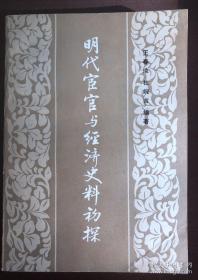 明代宦官与经济史料初探
王春瑜 杜婉言 编著